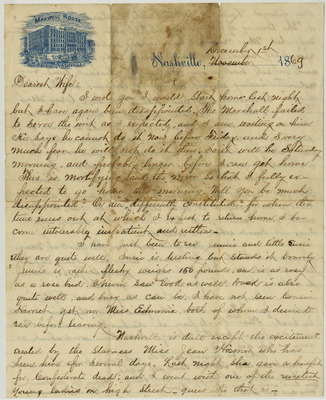 MAXWELL HOUSE
December 1st
Nashville, November 1869
Dearest Wife:
I wrote you I would start home last night
but I have again been disappointed. The Marshall failed
to serve the writ as I expected, and I am waiting on him
He says he cannot do it now before Friday and I very
much fear he will not do it then, which will be Saturday
morning and probably longer before I can get home
This is mortifying and the more so that I fully ex-
pected to go home this morning. Will you be much
disappointed? I am differently constituted: for when the
time runs out at which I expect to return home I be-
come intolerably impatient and restless.
I have just been to see Junnie and little Susie
they are quite well. Susie is teething but stands it bravely
Junnie is quite fleshy weighs 150 pounds, and is as rosy
as a rose bud. I have seen Tood as well. Tood is also
quite well, and busy as can be. I have not seen Cousin
Harriet yet, nor Miss Edmonia both of whom I desire to
see before leaving.
Nashville is dull except the excitement
created by the Miss Jean Hosmer who has
been here for several days. Last night she gave a benefit
for Confederate dead, and I went with one of the sweetest
young ladies on High Street. Guess the rest